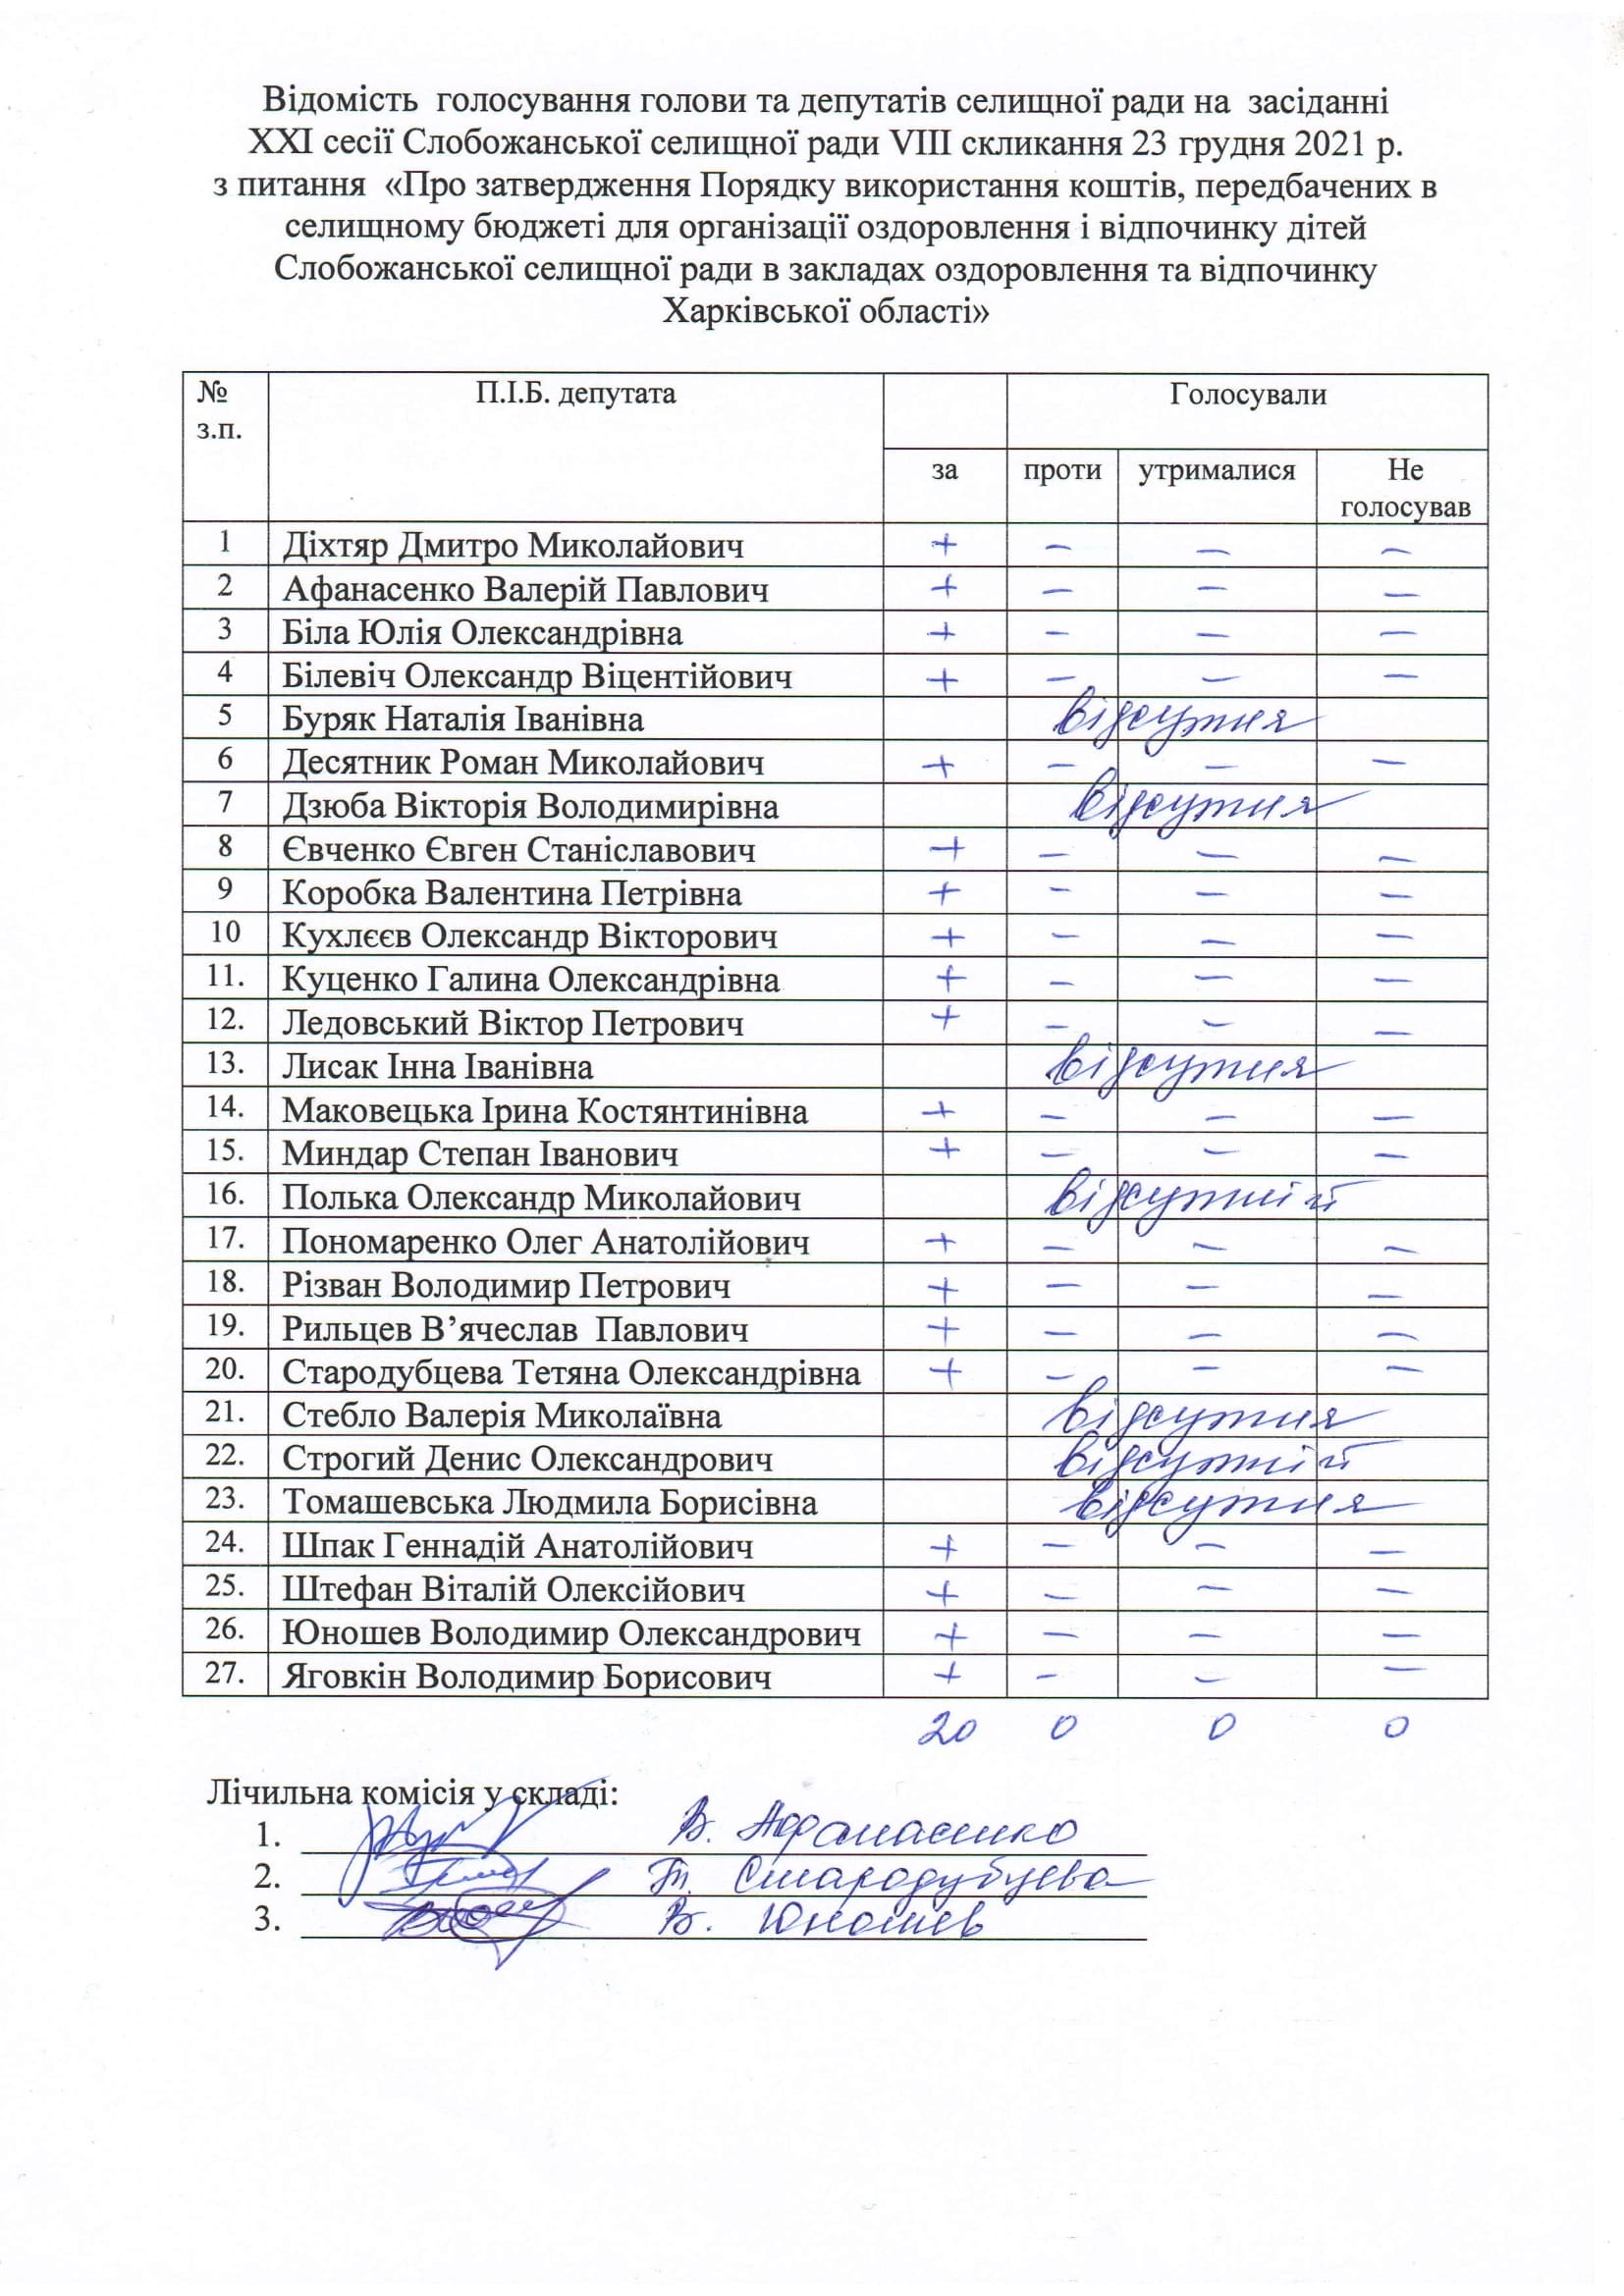 Відомість голосування голови та депутатів селищної ради на засіданні
XXI сесії Слобожанської селищної ради VIII скликання 23 грудня 2021 р.
з питання «Про затвердження Порядку використання коштів, передбачених в
селищному бюджеті для організації оздоровлення і відпочинку дітей
Слобожанської селищної ради в закладах оздоровлення та відпочинку
Харківської області»
№ з.п. П.І.Б. депутата Голосували
за проти утрималися Не голосував
1 Діхтяр Дмитро Миколайович + – – –
2 Афанасенко Валерій Павлович + – – –
3 Біла Юлія Олександрівна + – – –
4 Білевіч Олександр Віцентійович + – – –
5 Буряк Наталія Іванівна відсутня
6 Десятник Роман Миколайович + – – –
7 Дзюба Вікторія Володимирівна відсутня
8 Євченко Євген Станіславович + – – –
9 Коробка Валентина Петрівна + – – –
10 Кухлєєв Олександр Вікторович + – – –
11. Куценко Галина Олександрівна + – – –
12. Ледовський Віктор Петрович + – – –
13. Лисак Інна Іванівна відсутня
14. Маковецька Ірина Костянтинівна + – – –
15. Миндар Степан Іванович + – – –
16. Полька Олександр Миколайович відсутній
17. Пономаренко Олег Анатолійович + – – –
18. Різван Володимир Петрович + – – –
19. Рильцев В’ячеслав Павлович + – – –
20. Стародубцева Тетяна Олександрівна + – – –
21. Стебло Валерія Миколаївна відсутня
22. Строгий Денис Олександрович відсутній
23. Томашевська Людмила Борисівна відсутня
24. Шпак Геннадій Анатолійович + – – –
25. Штефан Віталій Олексійович + – – –
26. Юношев Володимир Олександрович + – – –
27. Яговкін Володимир Борисович + – – –
20 0 0 0
Лічильна комісія у складі:
1. В. Афанасенко
2. Т. Стародубцева
3. В. Юношев